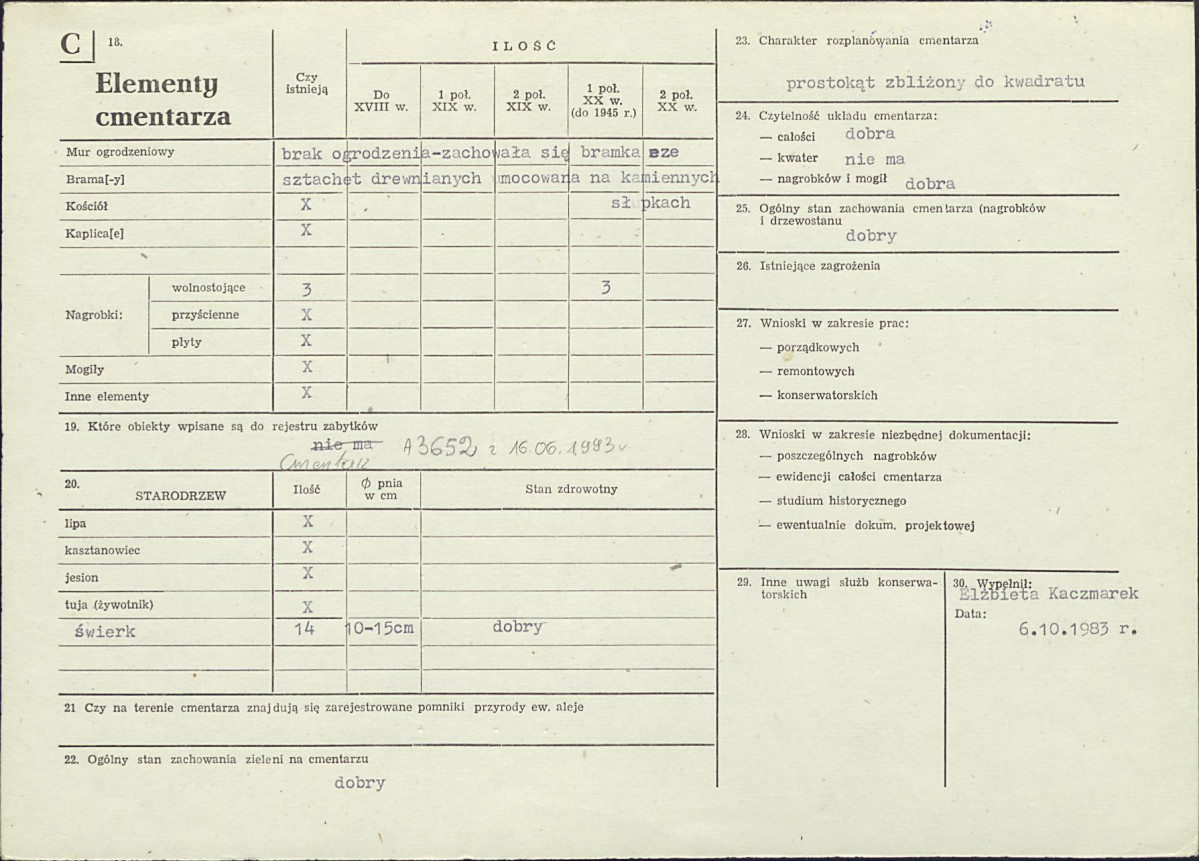 C 18.
Elementy
cmentarza
Czy
istnieją
ILOŚĆ
Do
XVIII w.
1 poł.
XIX w.
2 poł.
XIX w.
1 poł.
XX w.
(do 1945 r.)
2 poł.
XX w.
Mur ogrodzeniowy brak ogrodzenia-zachowała się bramka eze
Brama[-y] sztachet drewnianych umocowana na kamiennych
Kościół X słupkach
Kaplica[e] X
Nagrobki:
wolnostojące 3 3
przyścienne X
płyty X
Mogiły X
Inne elementy X
19. Które obiekty wpisane są do rejestru zabytków
nie ma A 3652 z 16.06.1993 r.
Cmentarz
20.
STARODRZEW
Ilość
Φ pnia
w cm
Stan zdrowotny
lipa X
kasztanowiec X
jesion X
tuja (żywotnik) X
świerk 14 10-15cm dobry
21 Czy na terenie cmentarza znajdują się zarejestrowane pomniki przyrody ew. aleje
22. Ogólny stan zachowania zieleni na cmentarzu
dobry
23. Charakter rozplanowania cmentarza
prostokąt zbliżony do kwadratu
24. Czytelność układu cmentarza:
— całości dobra
— kwater nie ma
— nagrobków i mogił dobra
25. Ogólny stan zachowania cmentarza (nagrobków
i drzewostanu
dobry
26. Istniejące zagrożenia
27. Wnioski w zakresie prac:
— porządkowych
— remontowych
— konserwatorskich
28. Wnioski w zakresie niezbędnej dokumentacji:
— poszczególnych nagrobków
— ewidencji całości cmentarza
— studium historycznego
— ewentualnie dokum. projektowej
29. Inne uwagi służb konserwa-
torskich
30. Wypełnił:
Elżbieta Kaczmarek
Data:
6.10.1983 r.